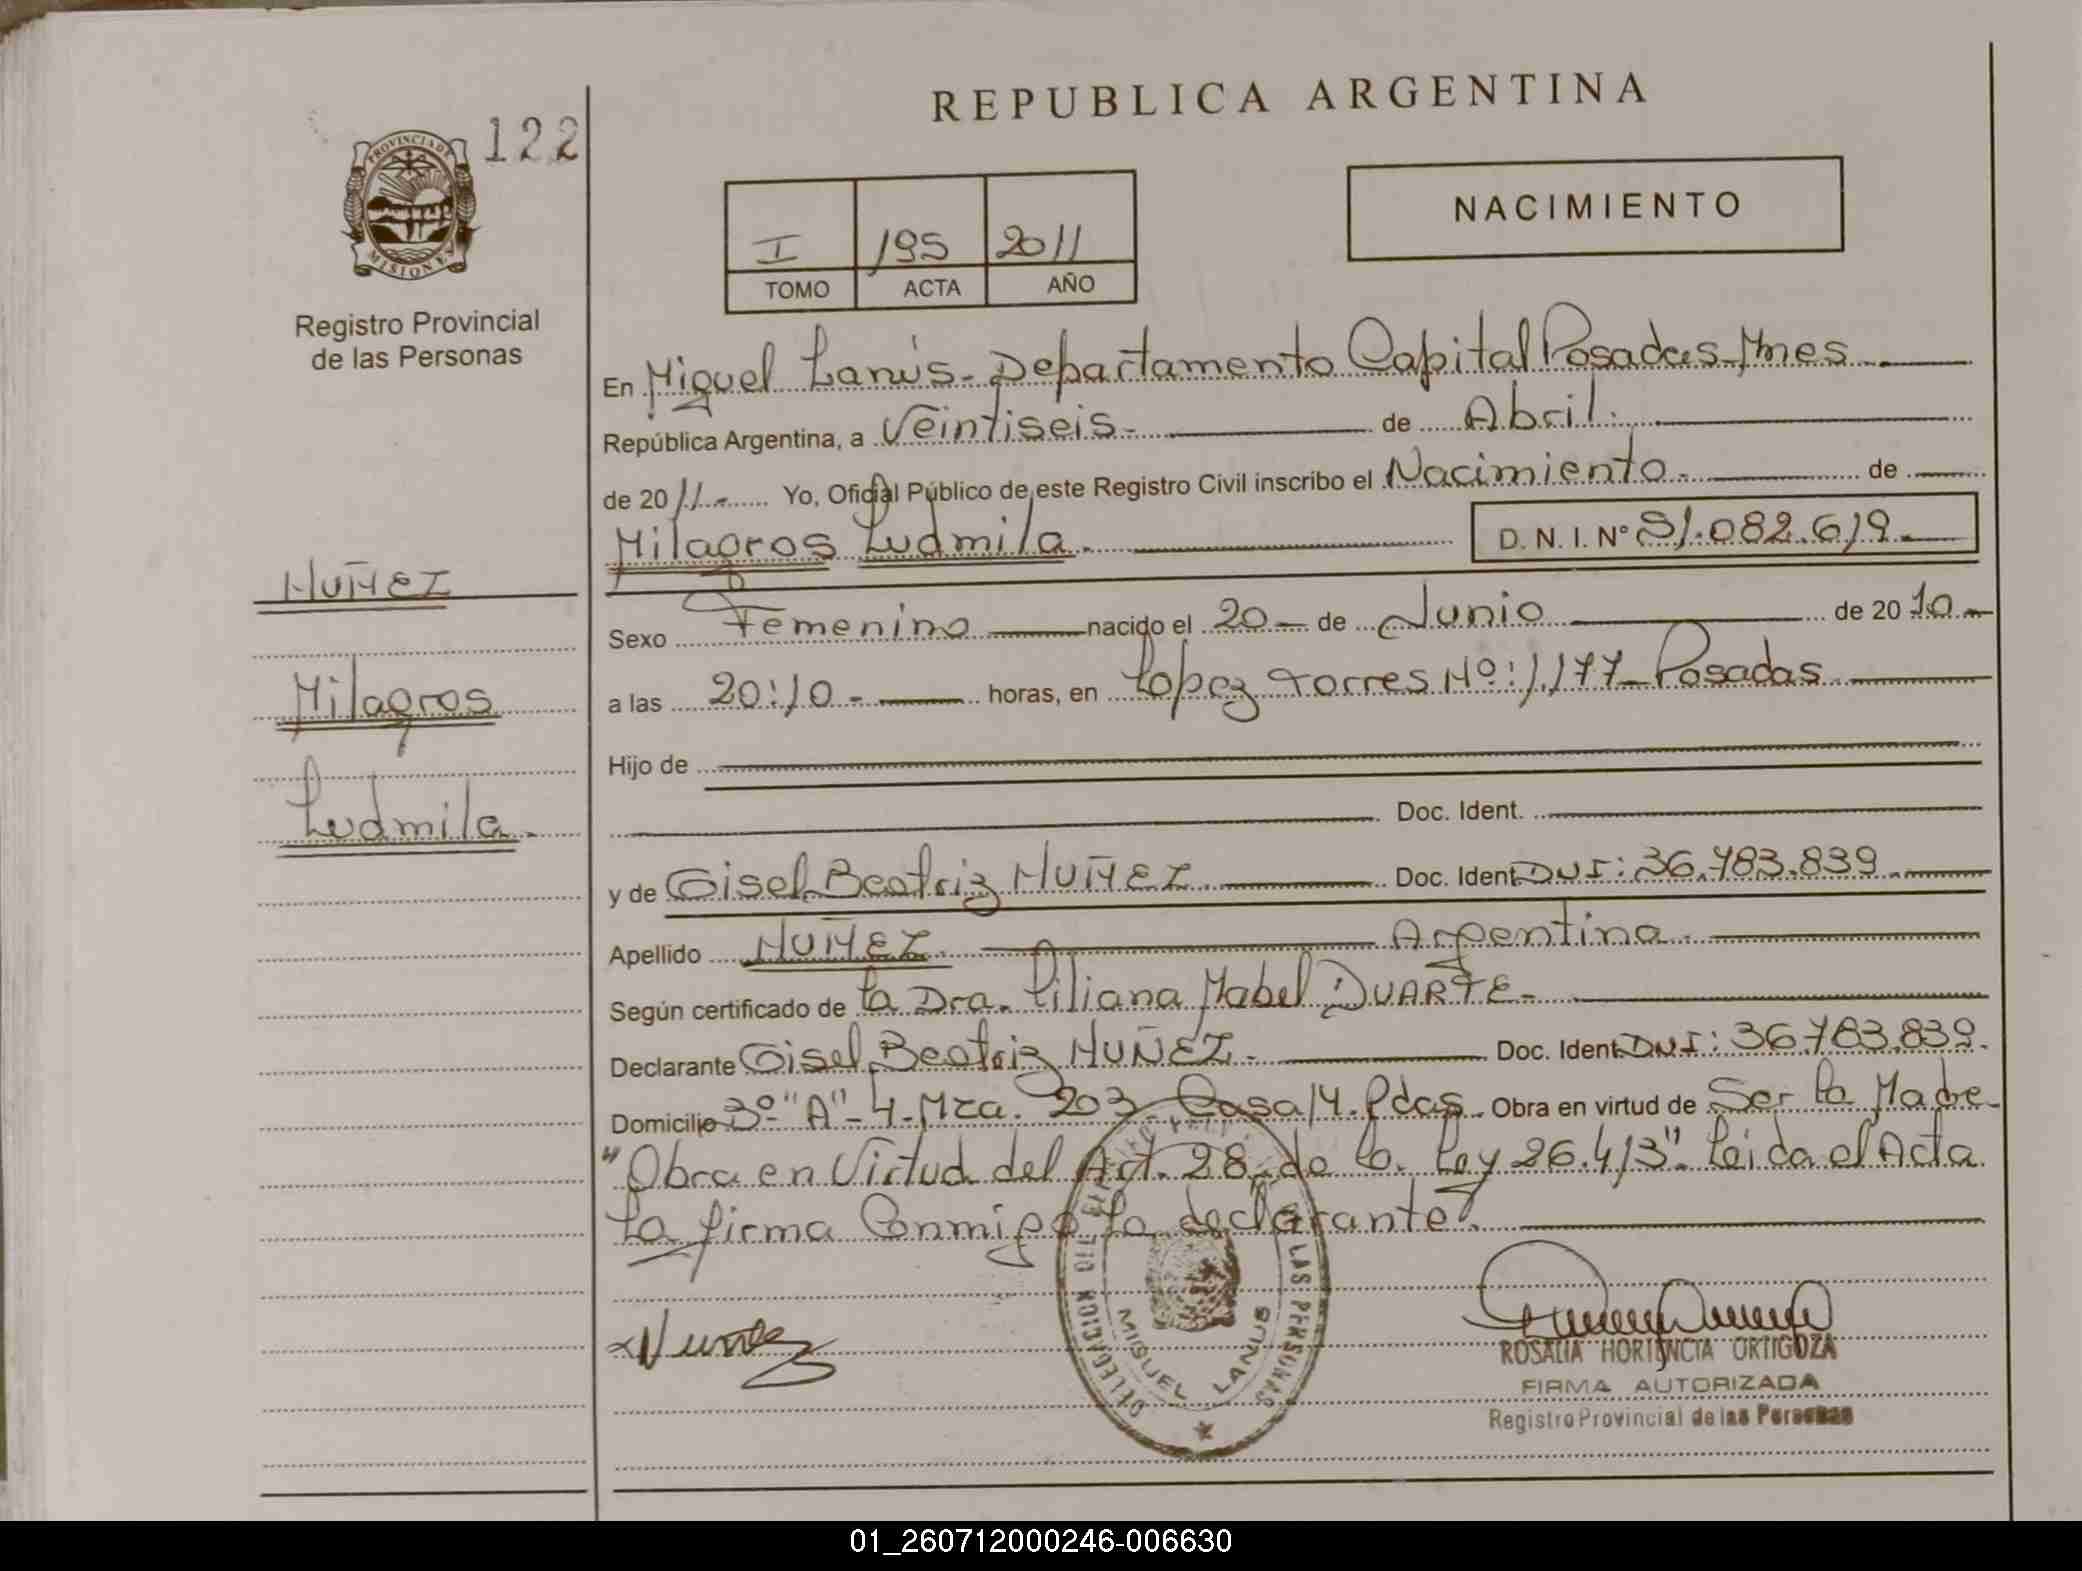 REPUBLICA ARGENTINA
122
PROVINCIA DE
MISIONES
Registro Provincial
de las Personas
NACIMIENTO
I 195 2011
TOMO ACTA AÑO
En Miguel Lanús - Departamento Capital Posadas - Mnes
República Argentina, a Veintiseis - de Abril.
de 2011 - Yo, Oficial Público de este Registro Civil inscribo el Nacimiento - de
Milagros Ludmila - D. N. I. Nº 51.082.619 -
NUÑEZ
Milagros
Ludmila -
Sexo Femenino nacido el 20 - de Junio de 2010 -
a las 20:10 - horas, en Lopez Torres Nº: 1.177 - Posadas
Hijo de
Doc. Ident.
y de Gisel Beatriz NUÑEZ Doc. Ident DNI: 36.783.839
Apellido NUÑEZ Argentina -
Según certificado de la Dra. Liliana Mabel DUARTE -
Declarante Gisel Beatriz NUÑEZ - Doc. Ident DNI: 36.783.839.
Domicilio 3º "A" - 4 - Mza. 203 - Casa 14. Pdas. Obra en virtud de Ser la Madre
"Obra en Virtud del Art. 28 de la Ley 26.413". Leida el Acta
la firma Conmigo la declarante.
Nuñez
DELEGACION
LAS PERSONAS
MIGUEL LANUS
ROSALIA HORTENCIA ORTIGOZA
FIRMA AUTORIZADA
Registro Provincial de las Personas
01_260712000246-006630